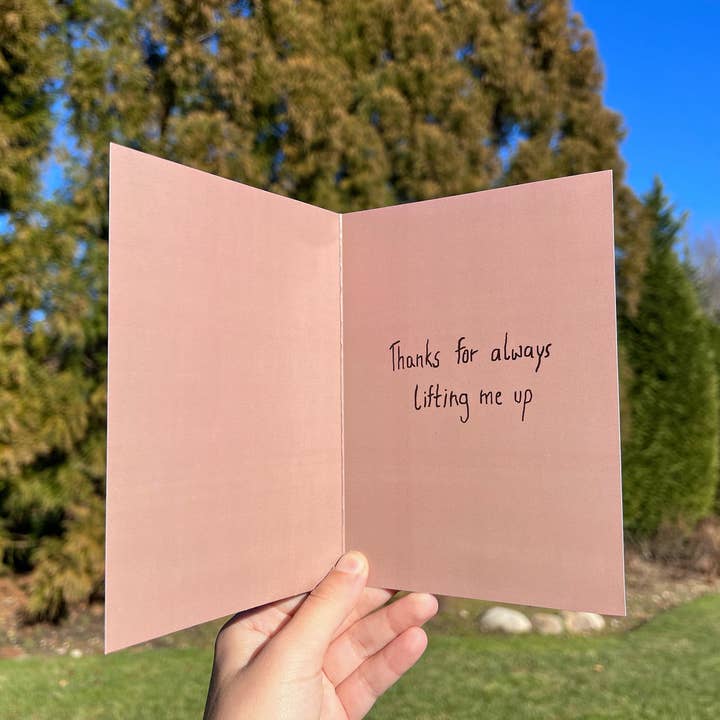 Thanks for always
lifting me up